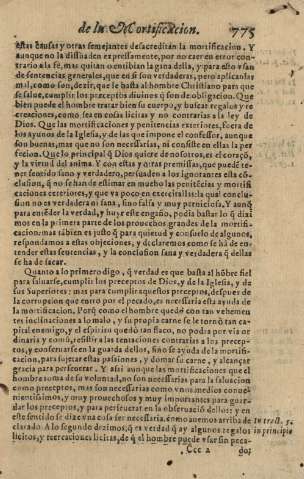 de la Mortificacion. 775
estas causas y otras semejantes desacreditan la mortificacion. Y
aunque no la dissuaden expressamente, por no caer en error con-
trario a la fè, mas quitan o entibian la gana della, y para esto vsan
de sentencias generales, que en si son verdaderas, pero aplicanlas
mal, como son, dezir, que le basta al hombre Christiano para que
se salue, cumplir los preceptos diuinos q̃ son de obligacion. Que
bien puede el hombre tratar bien su cuerpo, y buscar regalos y re
creaciones, como sea en cosas licitas y no contrarias a la ley de
Dios. Que las mortificaciones y penitencias exteriores, fuera de
los ayunos de la Iglesia, y de las que impone el confessor, aunque
son buenas, mas que no son necessarias, ni consiste en ellas la per
fecion. Que lo principal q̃ Dios quiere de nosotros, es el coraçõ,
y la virtud del anima. Y con estas y otras premissas, que puedẽ te-
ner sentido sano y verdadero, persuaden a los ignorantes esta cõ-
clusion, q̃ no se han de estimar en mucho las penitẽcias y mortifi
caciones exteriores, y que va poco en exercitallas: la qual conclu-
sion no es verdadera ni sana, sino falsa y muy perniciosa. Y aunq̃
para entẽder la verdad, y huyr este engaño, podia bastar lo q̃ dixi
mos en la primera parte de los prouechos grandes de la mortifi-
cacion: mas tãbien es justo q̃ para quietud y consuelo de algunos,
respondamos a estas objeciones, y declaremos como se hã de en-
tender estas sentencias, y la conclusion sana y verdadera q̃ dellas
se ha de sacar.
Quanto a lo primero digo, q̃ verdad es que basta al hõbre fiel
para saluarse, cumplir los preceptos de Dios, y de la Iglesia, y de
sus Superiores: mas para cumplir aquellos preceptos, despues de
la corrupcion que entro por el pecado, es necessaria esta ayuda de
la mortificacion. Porq̃ como el hombre quedò con tan vehemen
tes inclinaciones a lo malo, y su propia carne se le tornò tan ca-
pital enemigo, y el espiritu quedò tan flaco, no podia por via or
dinaria y comũ, resistir a las tentaciones contrarias a los precep-
tos, y conseruarse en la guarda dellos, sino se ayuda de la mortifi-
cacion, para sujetar estas passiones, y domar su carne, y alcançar
gracia para perseuerar. Y assi aunque las mortificaciones que el
hombre toma de su voluntad, no son necessarias para la saluacion
como preceptos, mas son necessarias como vnos medios conue-
nientissimos, y muy prouechosos y muy importantes para guar-
dar los preceptos, y para perseuerar en la obseruaciõ dellos: y en
este sentido se dize vna cosa ser necessaria, como auemos arriba de
clarado. A lo segundo dezimos, q̃ es verdad q̃ ay algunos regalos
licitos, y recreaciones licitas, de q̃ el hombre puede vsar sin peca-
In tract. 5.
in principio
Ccc 2 do;